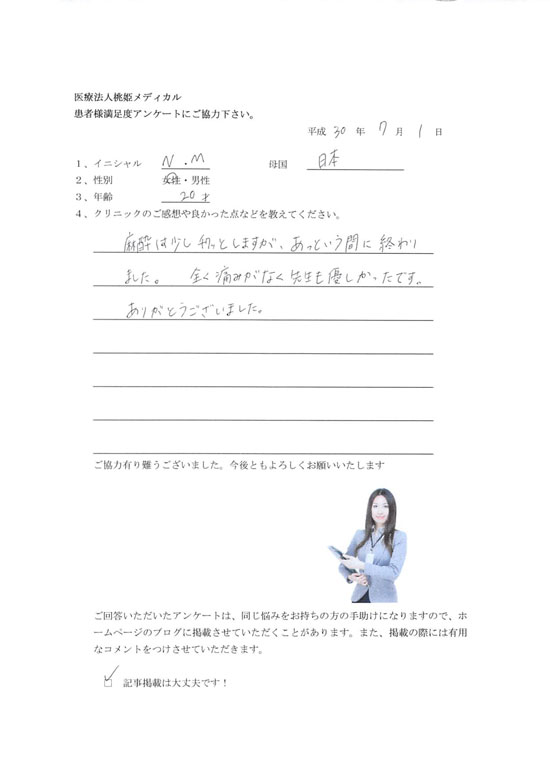 医療法人桃姫メディカル
患者様満足度アンケートにご協力下さい。
平成 30 年 7 月 1 日
1、イニシャル N・M 母国 日本
2、性別 女性・男性
3、年齢 20才
4、クリニックのご感想や良かった点などを教えてください。
麻酔は少しチクッとしますが、あっという間に終わり
ました。 全く痛みがなく先生も優しかったです。
ありがとうございました。
ご協力有り難うございました。今後ともよろしくお願いいたします
ご回答いただいたアンケートは、同じ悩みをお持ちの方の手助けになりますので、ホ
ームページのブログに掲載させていただくことがあります。また、掲載の際には有用
なコメントをつけさせていただきます。
記事掲載は大丈夫です！